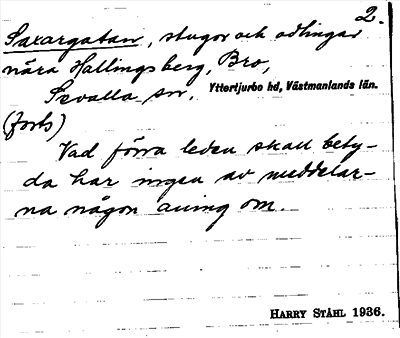 2.
Saxargatan, stugor och odlingar
nära Hallingsberg, Bro,
Sevalla sn. Yttertjurbo hd, Västmanlands län.
(forts)
Vad förra leden skall bety-
da har ingen av meddelar-
na någon aning om.
HARRY STÅHL 1936.